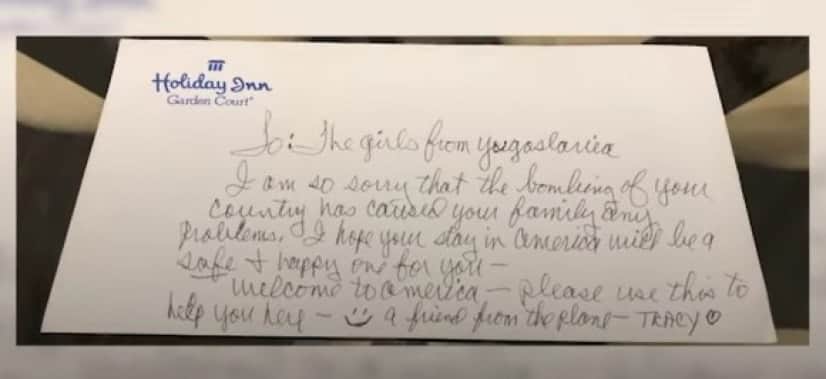 Holiday Inn
Garden Court
To: The girls from Yugoslavia
I am so sorry that the bombing of your
country has caused your family any
problems. I hope your stay in America will be a
safe + happy one for you -
Welcome to America - please use this to
help you here - a friend from the plane - TRACY ♡